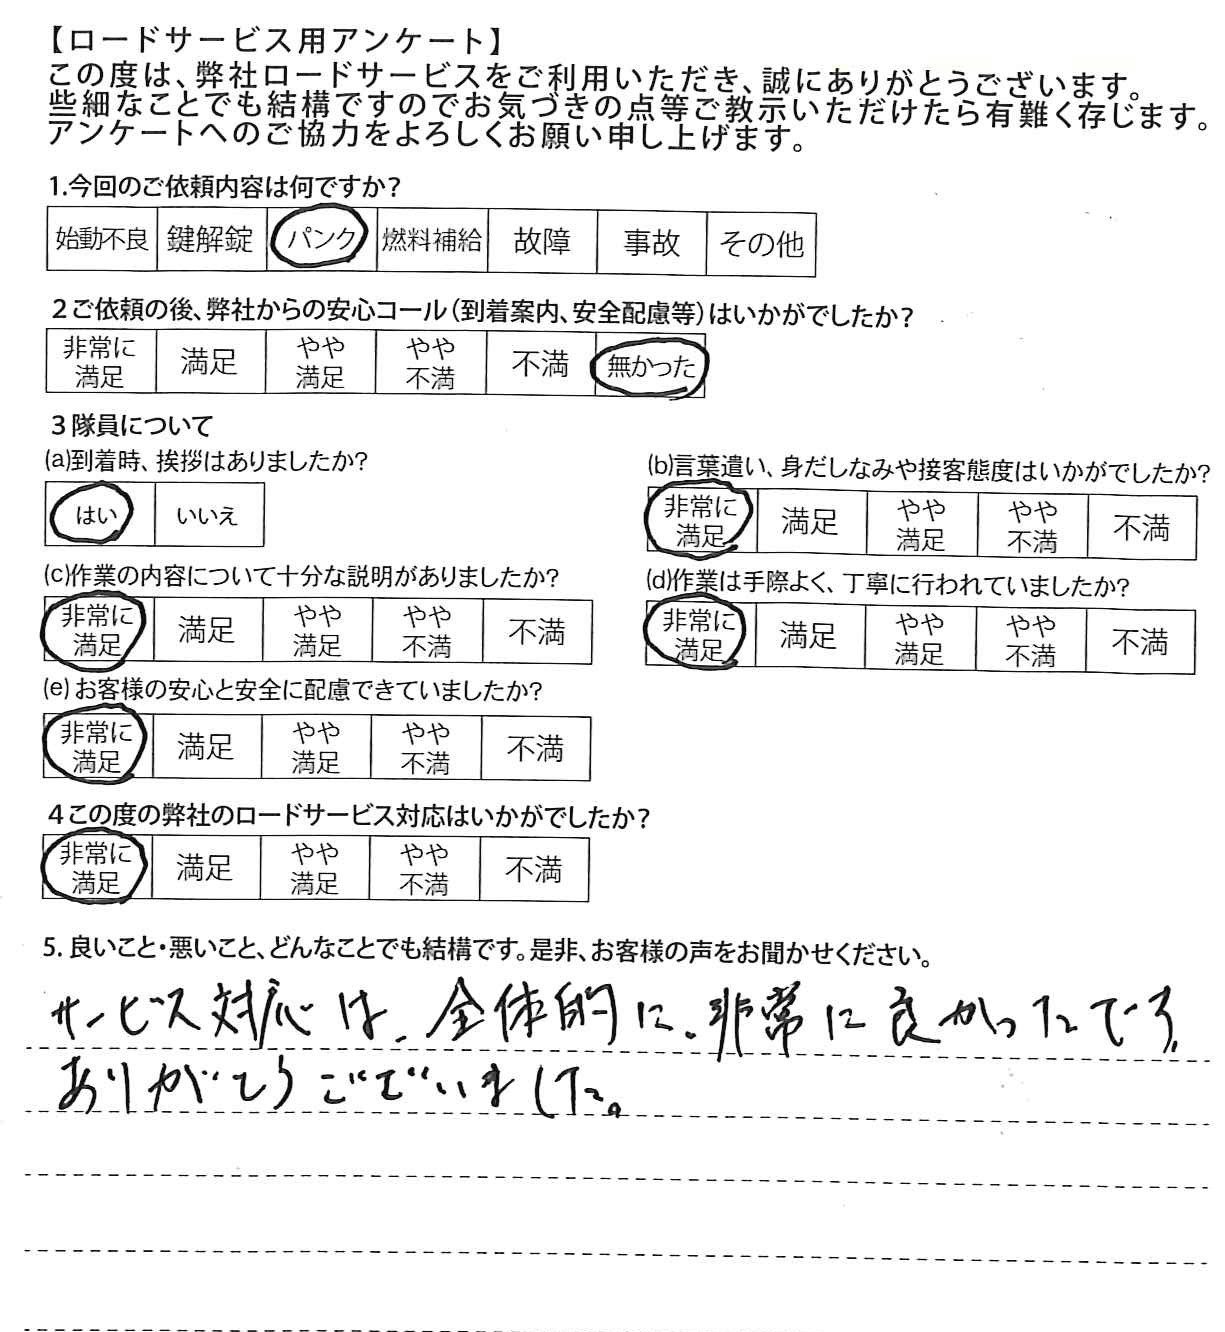 【ロードサービス用アンケート】
この度は、弊社ロードサービスをご利用いただき、誠にありがとうございます。
些細なことでも結構ですのでお気づきの点等ご教示いただけたら有難く存じます。
アンケートへのご協力をよろしくお願い申し上げます。
1.今回のご依頼内容は何ですか?
始動不良 鍵解錠 パンク 燃料補給 故障 事故 その他
2ご依頼の後、弊社からの安心コール(到着案内、安全配慮等)はいかがでしたか?
非常に満足 満足 やや満足 やや不満 不満 無かった
3隊員について
(a)到着時、挨拶はありましたか?
はい いいえ
(b)言葉遣い、身だしなみや接客態度はいかがでしたか?
非常に満足 満足 やや満足 やや不満 不満
(c)作業の内容について十分な説明がありましたか?
非常に満足 満足 やや満足 やや不満 不満
(d)作業は手際よく、丁寧に行われていましたか?
非常に満足 満足 やや満足 やや不満 不満
(e)お客様の安心と安全に配慮できていましたか?
非常に満足 満足 やや満足 やや不満 不満
4この度の弊社のロードサービス対応はいかがでしたか?
非常に満足 満足 やや満足 やや不満 不満
5. 良いこと・悪いこと、どんなことでも結構です。是非、お客様の声をお聞かせください。
サービス対応は、全体的に、非常に良かったです。
ありがとうございました。